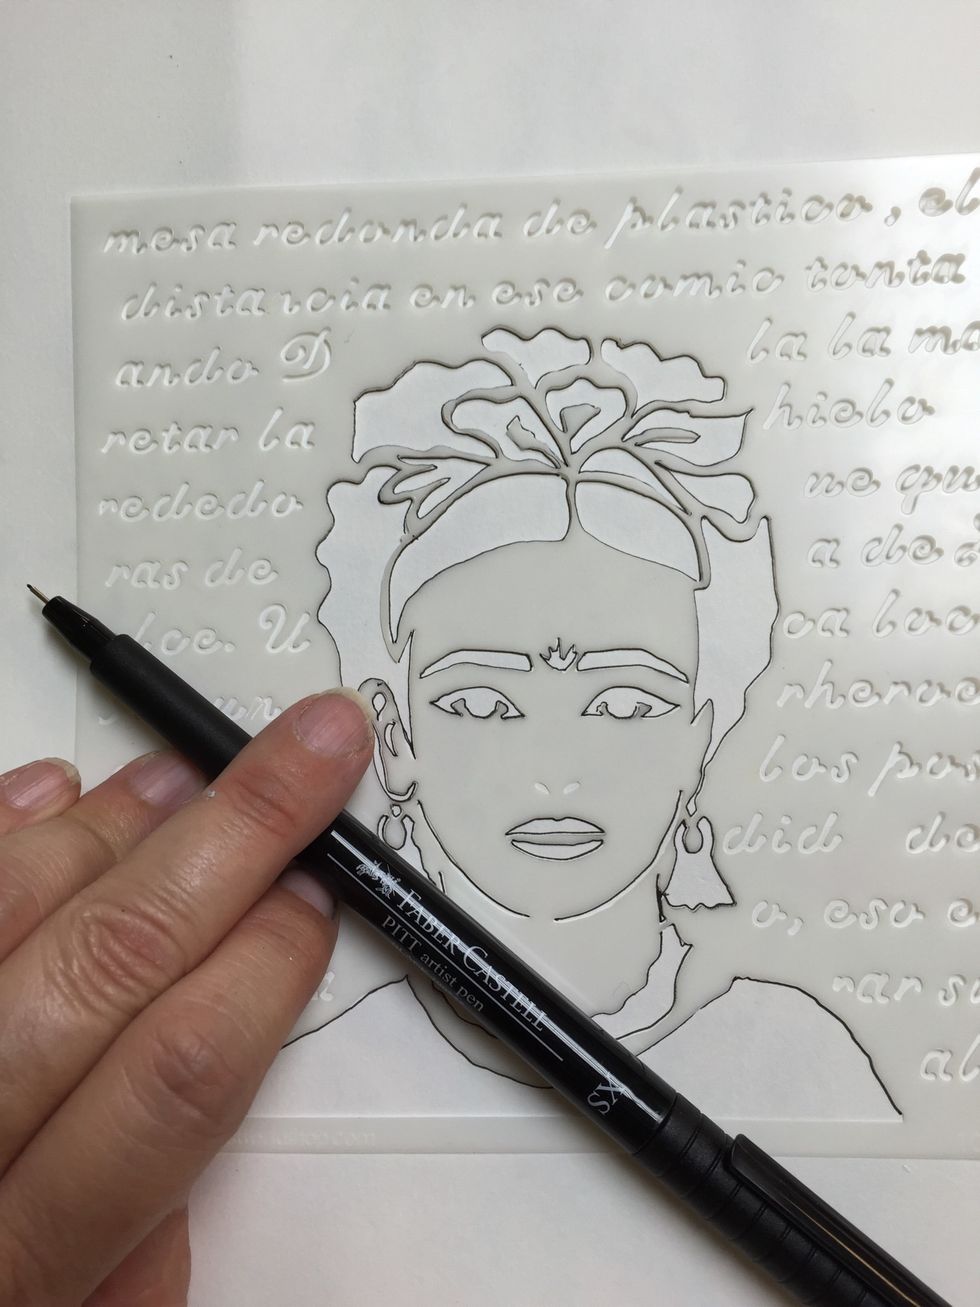 mesa redonda de plastico, el
distancia en ese comic tonta
ando D
la la ma
retar la
hielo
rededo
ue qu
ras de
a de
lce. U
ca loc
un
rherve
los pos
did de
o, eso e
rar su
al
FABER CASTELL
PITT artist pen
XS